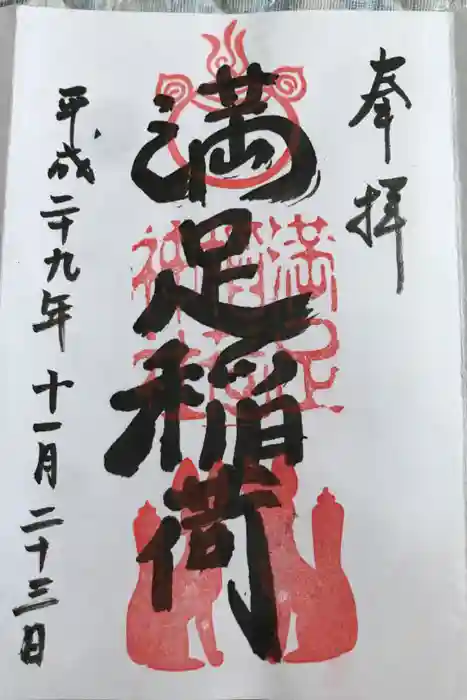 奉拝
満足稲荷
満足
稲荷
神社
平成二十九年十一月二十三日